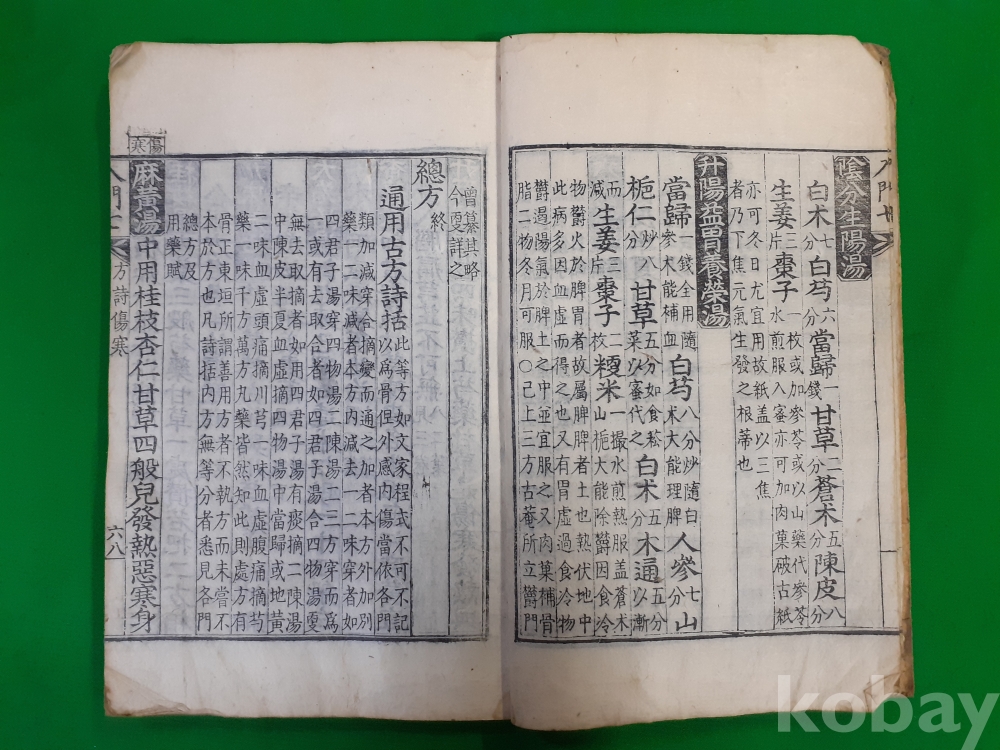 入門七
陰分生陽湯
白木七分白芍六分當歸一錢甘草二分蒼朮五分陳皮八分
生姜三片棗子一枚或加參苓或以山藥代參苓
水煎服入蜜亦可加肉菓破古紙
亦可冬日尤宜用故紙盖以三焦
者乃下焦元氣生發之根蒂也
升陽益胃養榮湯
當歸一錢全用隨參朮大能補血白芍八分炒隨白朮大能理脾人參七分山
梔仁炒八分甘草五分如食菘菜以蜜代之白朮五分木通五分以漸
而减生姜三片棗子二枚粳米一撮水煎熱服盖蒼木山梔大能除欝因食冷
物欝火於脾胃者故屬脾脾胃者土也熱伏地中
此病多因血虛而得之也又有胃虛過食冷物
欝遏陽氣於脾土之中並宜服之又肉菓補骨
脂二物冬月可服○已上三方方菴所立欝門
曾纂其略
今更詳之
總方終
通用古方詩括此等方如文家程式不可不記
以爲骨但外感內傷當依各門
類加減穿合摘變而通之加者本方外加別
藥一二味減者本方內減去一二味穿者如
四君子湯穿四物湯二陳湯二三方穿而爲
一或有去取合者如四君子湯合四物湯更
無去取摘者如用四君子湯有痰摘二陳湯
中陳皮半夏血虛摘四物湯中當歸或地黃
二味血虛頭痛摘川芎一味血虛腹痛摘芍
藥一味千方萬方丸藥皆然知此則處方有
骨正東垣所謂善用方者不執方而未嘗不
本於方也凡詩括內方無等分者悉見各門
總方及
用藥賦
傷寒
麻黃湯中用桂枝杏仁甘草四般兒發熱惡寒身
入門七 方詩傷寒 六八
kobay